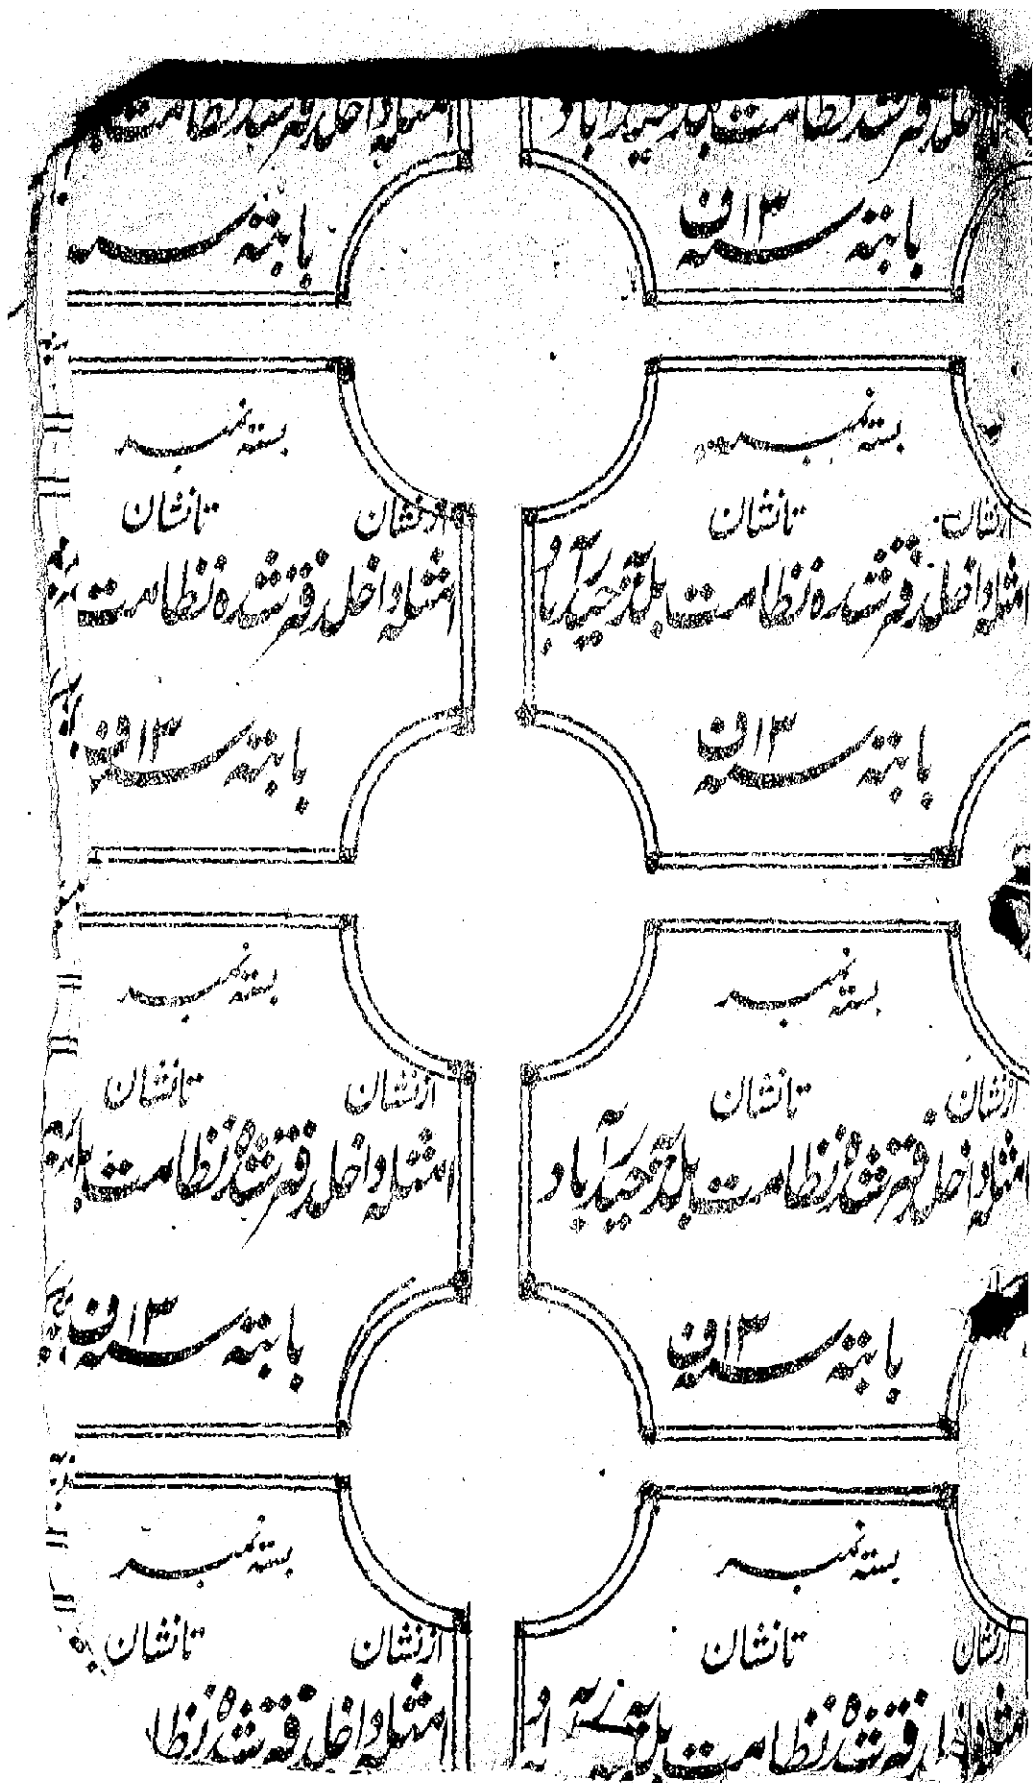 داخلدفتر شدہ نظامت بلدہ حیدرآباد
بابتہ سنہ ۱۳ ف
امثلہ داخلدفتر شدہ نظامت
بابتہ سنہ
بستہ نمبر
از نشان تا نشان
امثلہ داخلدفتر شدہ نظامت بلدہ حیدرآباد
بابتہ سنہ ۱۳ ف
بستہ نمبر
از نشان تا نشان
امثلہ داخلدفتر شدہ نظامت
بابتہ سنہ ۱۳ ف
بستہ نمبر
از نشان تا نشان
امثلہ داخلدفتر شدہ نظامت بلدہ حیدرآباد
بابتہ سنہ ۱۳ ف
بستہ نمبر
از نشان تا نشان
امثلہ داخلدفتر شدہ نظامت
بابتہ سنہ ۱۳ ف
بستہ نمبر
از نشان تا نشان
دفتر شدہ نظامت بلدہ
بستہ نمبر
از نشان تا نشان
امثلہ داخلدفتر شدہ